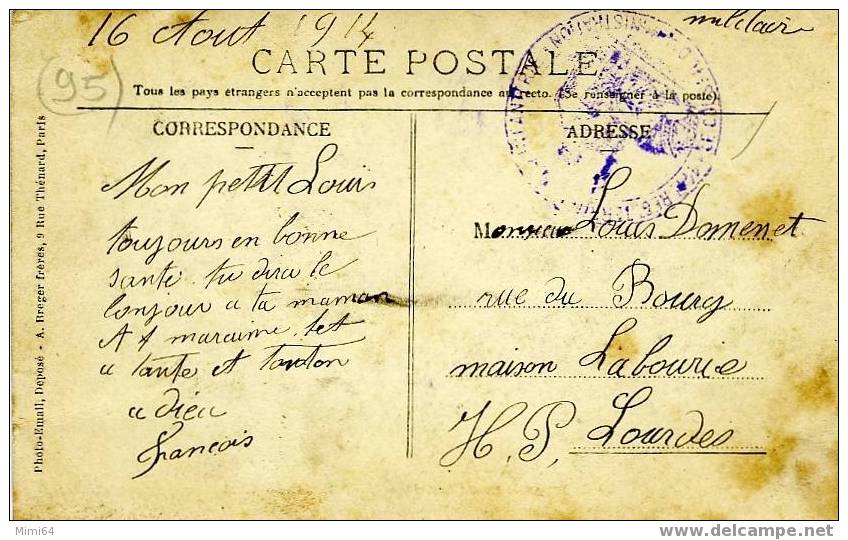 16 Aout 1914
militaire
CARTE POSTALE
95
Tous les pays étrangers n'acceptent pas la correspondance au recto. (Se renseigner à la poste)
CORRESPONDANCE
Mon petit Louis
toujours en bonne
santé tu dira le
bonjour a ta maman
a tante et tonton
a dieu
francois
ADRESSE
Monsieur Louis Domenet
rue du Bourg
maison Labourie
H. P. Lourdes
Photo-Email, Déposé - A. Breger frères, 9 Rue Thénard, Paris
Mimi64
www.delcampe.net